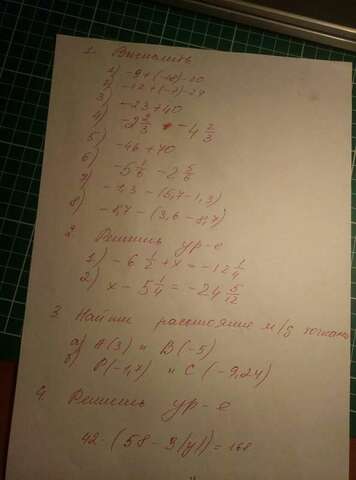 1. Вычислить
1) -9+(-10)-20
2) -12+(-7)-24
3) -23+40
4) -2 2/3 - 4 2/3
5) -46+70
6) -5 1/6 - 2 5/6
7) -1,3-(5,7-1,3)
8) -8,7-(3,6-8,7)
2. Решить ур-е
1) -6 1/2+x=-12 1/4
2) x-5 1/4=-24 5/12
3. Найти расстояние м/д точками
а) A(3) и B(-5)
б) P(-1,7) и C(-9,24)
4. Решить ур-е
42-(58-3|y|)=168